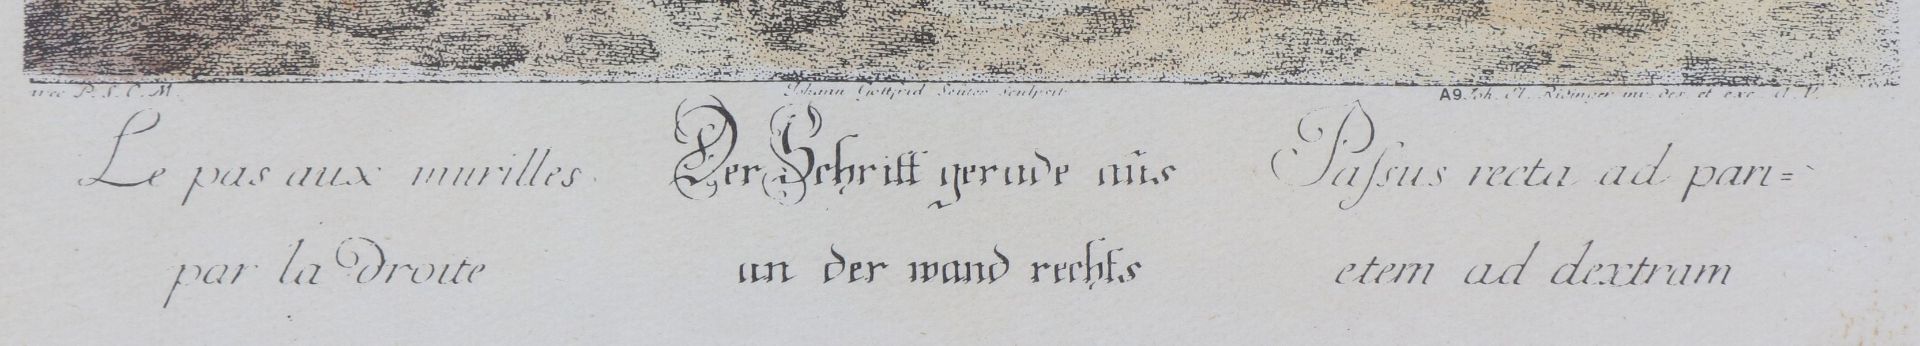 avec P. S. C. M.
Johann Gottfrid Seüter Sculpsit
A9 Joh. El. Ridinger inv. del. et exc. A. V.
Le pas aux murilles
par la droite
Der Schritt gerade aus
an der wand rechts
Passus recta ad pari=
etem ad dextram